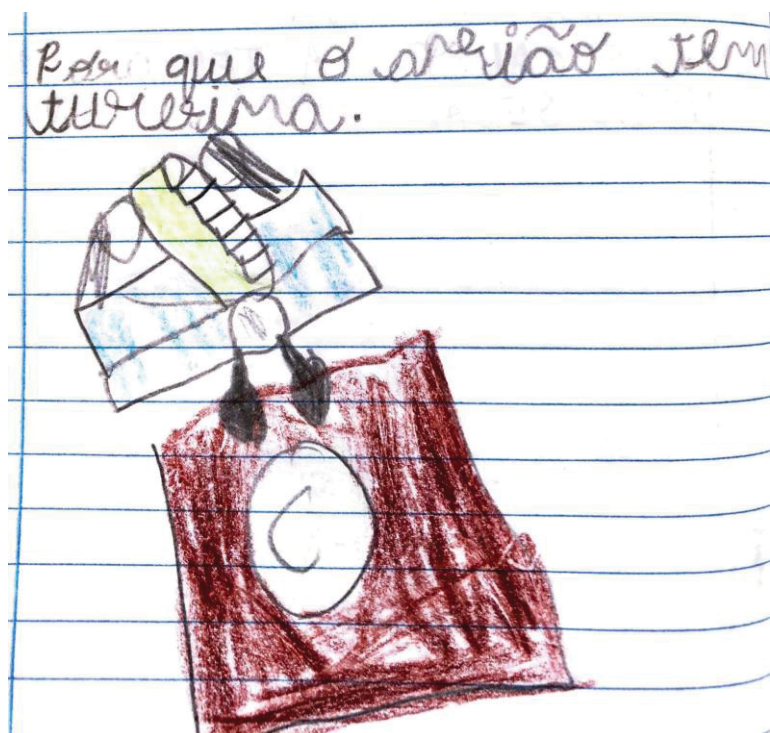 Por que o avião tem
turbina.